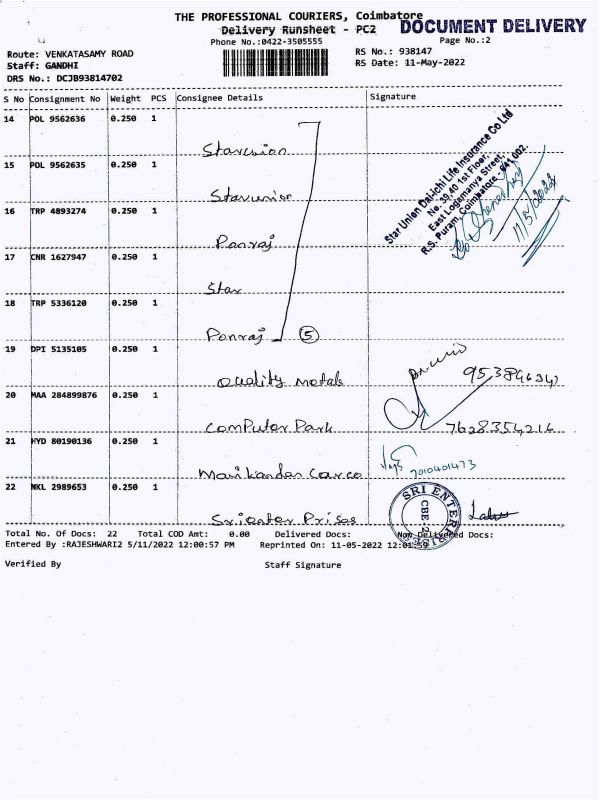 THE PROFESSIONAL COURIERS, Coimbatore
DOCUMENT DELIVERY
Delivery Runsheet - PC2
Phone No.:0422-3505555
Page No.:2
Route: VENKATASAMY ROAD
RS No.: 938147
Staff: GANDHI
RS Date: 11-May-2022
DRS No.: DCJB93814702
S No Consignment No Weight PCS Consignee Details Signature
14 POL 9562636 0.250 1
Starunion
15 POL 9562635 0.250 1
Starunion
16 TRP 4893274 0.250 1
Ponraj
17 CNR 1627947 0.250 1
Star
18 TRP 5336120 0.250 1
Ponraj 5
Star Union Dai-ichi Life Insurance Co Ltd
No. 39,40 1st Floor,
East Logamanya Street,
R.S. Puram, Coimbatore - 641 002.
11/5/2022
19 DPI 5135105 0.250 1
Quality metals
20 MAA 284899876 0.250 1
Computer Park
7628354216
21 HYD 80190136 0.250 1
Manikandan Carco
7010401473
22 NKL 2989653 0.250 1
Srienter Prises
SRI ENTERPRISES
CBE-2
Total No. Of Docs: 22 Total COD Amt: 0.00 Delivered Docs: Non Delivered Docs:
Entered By :RAJESHWARI2 5/11/2022 12:00:57 PM Reprinted On: 11-05-2022 12:01:59
Verified By Staff Signature